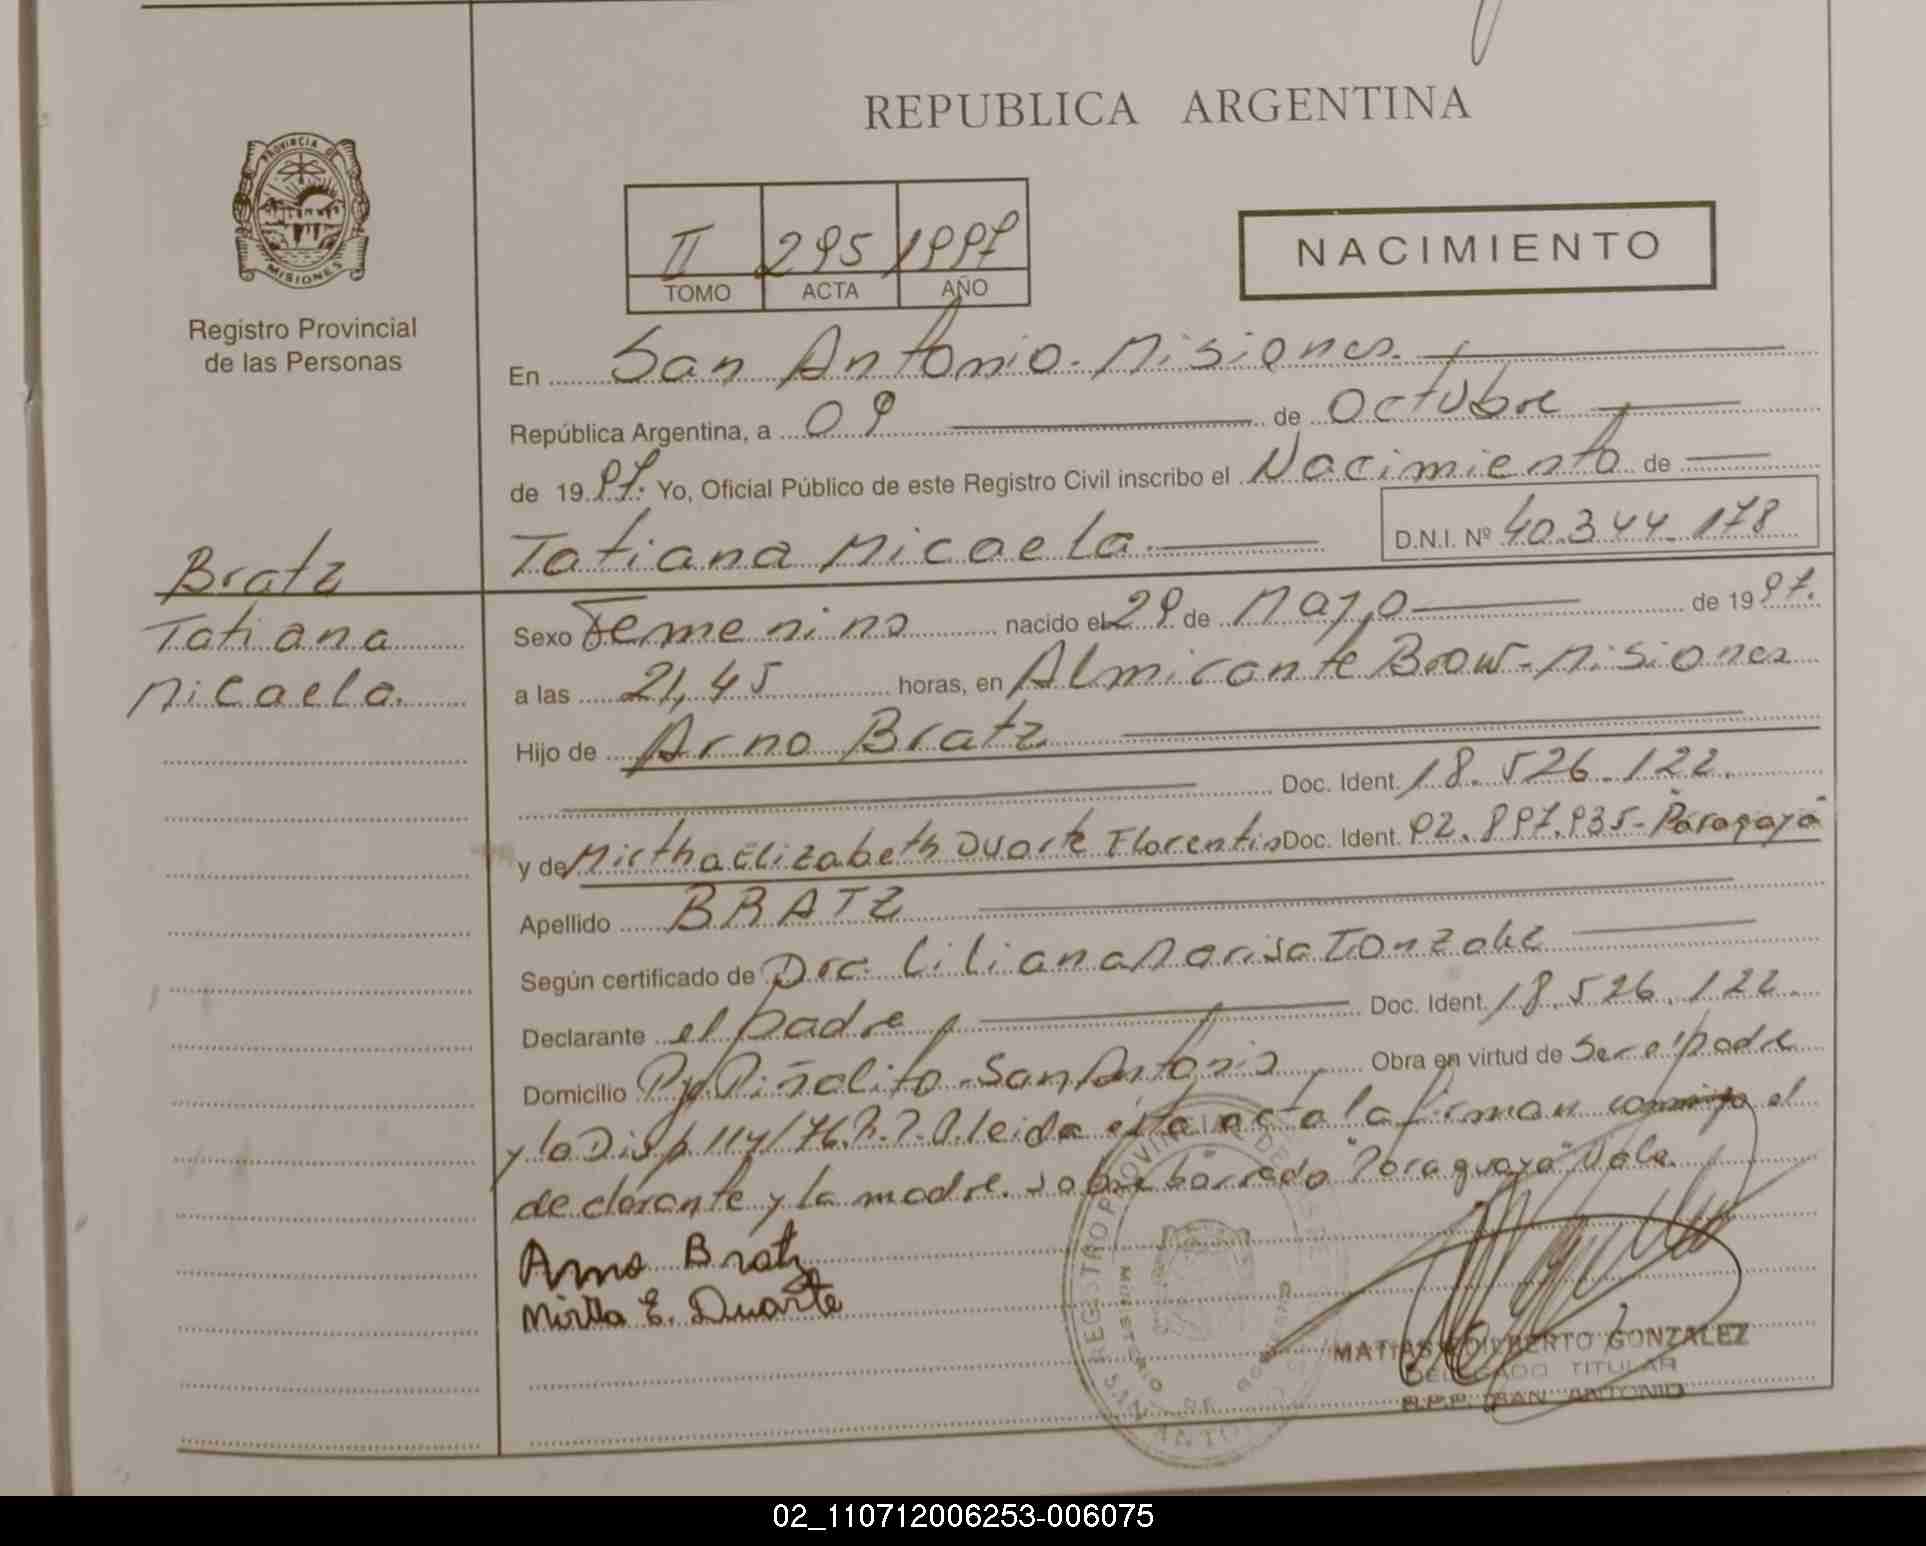 REPUBLICA ARGENTINA
PROVINCIA DE
MISIONES
Registro Provincial
de las Personas
II 295 1997
TOMO ACTA AÑO
NACIMIENTO
En San Antonio - Misiones.
República Argentina, a 09 de Octubre
de 1997. Yo, Oficial Público de este Registro Civil inscribo el Nacimiento de
Tatiana Micaela. D.N.I. Nº 40.344.178
Bratz
Tatiana
Micaela.
Sexo Femenino nacido el 29 de Mayo de 1997.
a las 21,45 horas, en Almirante Brow - Misiones
Hijo de Arno Bratz
Doc. Ident. 18.526.122.
y de Mirtha Elizabeth Duarte Florentin Doc. Ident. 92.897.935 - "Paragaya"
Apellido BRATZ
Según certificado de Dra. Liliana Marisa
Declarante el padre Doc. Ident. 18.526.122.
Domicilio Piñalito - San Antonio Obra en virtud de Ser el padre
y la Disp. 114/76. leida esta acta la firman conmigo el
declarante y la madre. Sobre borrado "Paraguaya" Vale.
Arno Bratz
Mirtha E. Duarte
REGISTRO PROVINCIAL DE
MINISTERIO DE GOBIERNO
SAN ANTONIO
MATIAS EDILBERTO GONZALEZ
DELEGADO TITULAR
R.P.P. SAN ANTONIO
02_110712006253-006075